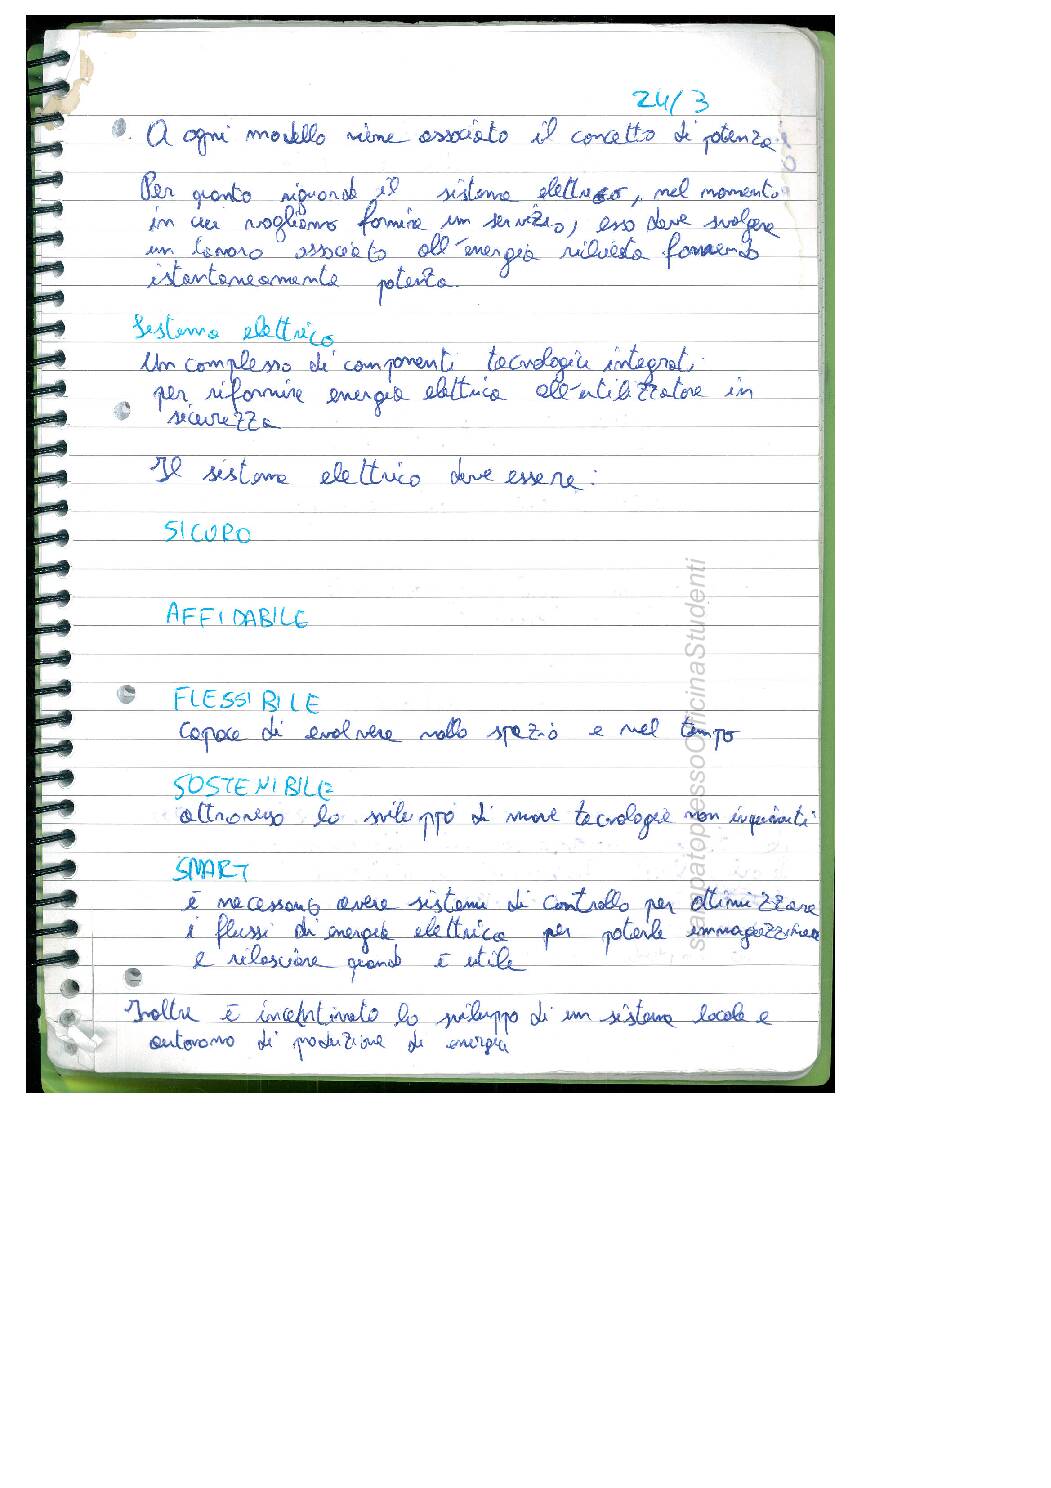 24/3
A ogni modello viene associato il concetto di potenza.
Per quanto riguarda il sistema elettrico, nel momento
in cui vogliamo fornire un servizio, esso deve svolgere
un lavoro associato all'energia richiesta fornendo
istantaneamente potenza.
Sistema elettrico
Un complesso di componenti tecnologici integrati
per rifornire energia elettrica all'utilizzatore in
sicurezza
Il sistema elettrico deve essere:
SICURO
AFFIDABILE
FLESSIBILE
capace di evolvere nello spazio e nel tempo
SOSTENIBILE
attraverso lo sviluppo di nuove tecnologie non inquinanti
SMART
è necessario avere sistemi di controllo per ottimizzare
i flussi di energia elettrica per poterla immagazzinare
e rilasciare quando è utile
Inoltre è incentivato lo sviluppo di un sistema locale e
autonomo di produzione di energia